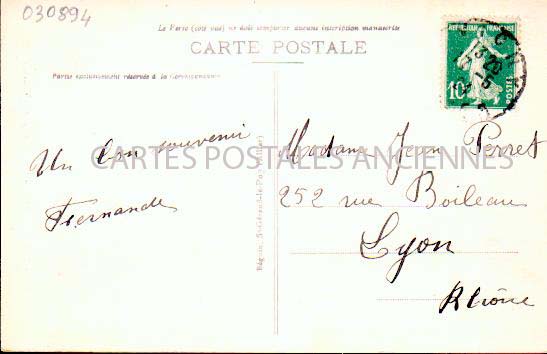 030894
Le Verso (côté vue) ne doit comporter aucune inscription manuscrite
CARTE POSTALE
Partie exclusivement réservée à la Correspondance
RÉPUBLIQUE FRANÇAISE
10
POSTES
CARTES POSTALES ANCIENNES
Un bon souvenir
Fernande
Madame Jean Perret
252 rue Boileau
Lyon
Rhône
St-Gérand-le-Puy (Allier)